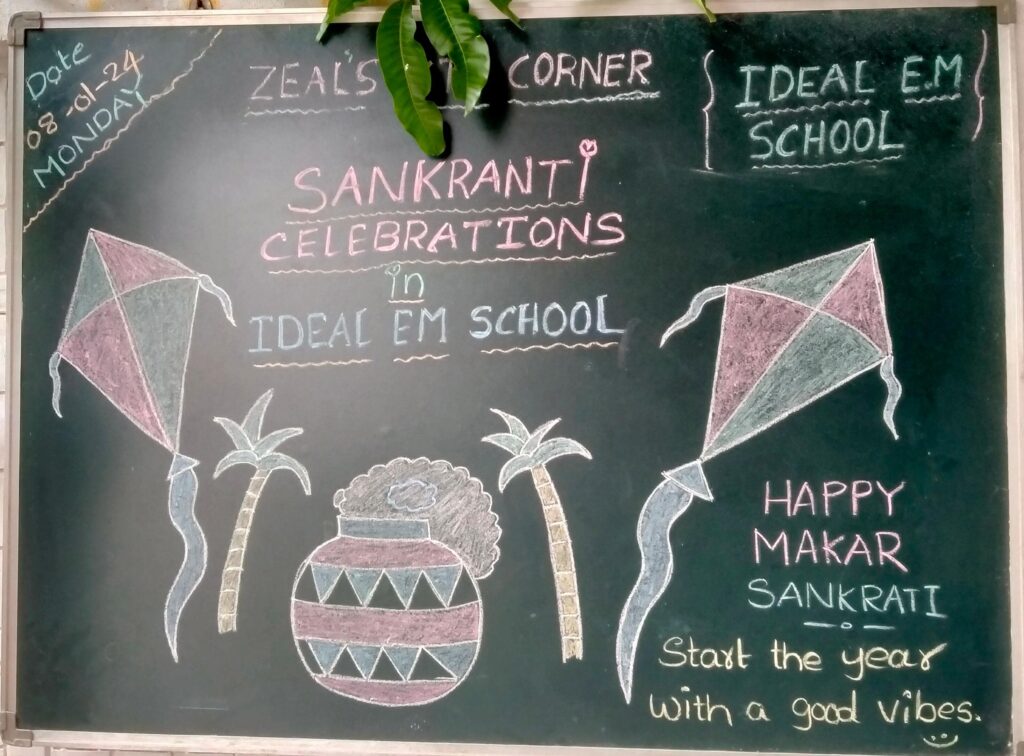 Date
08-01-24
MONDAY
ZEAL'S CORNER
IDEAL E.M
SCHOOL
SANKRANTI
CELEBRATIONS
in
IDEAL EM SCHOOL
HAPPY
MAKAR
SANKRATI
Start the year
with a good vibes.